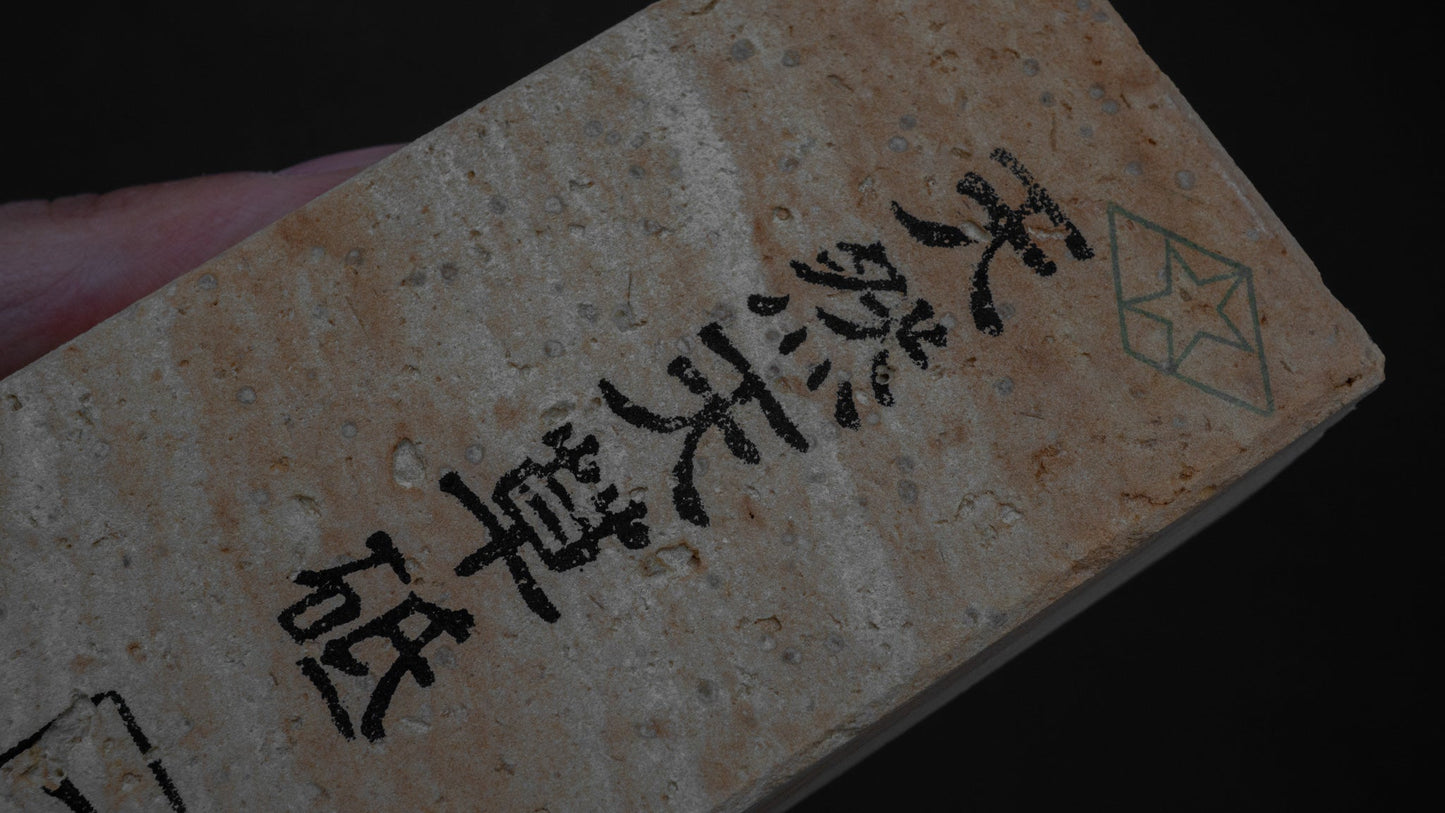 天然天草砥